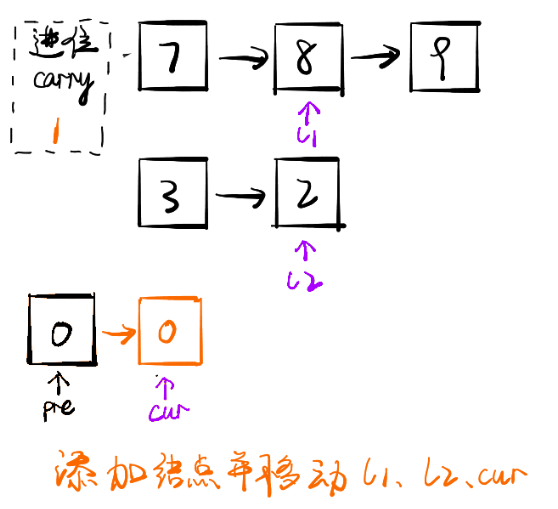 进位
carry
1
7 → 8 → 9
↑
l1
3 → 2
↑
l2
0 → 0
↑ ↑
pre cur
添加结点并移动 l1、l2、cur